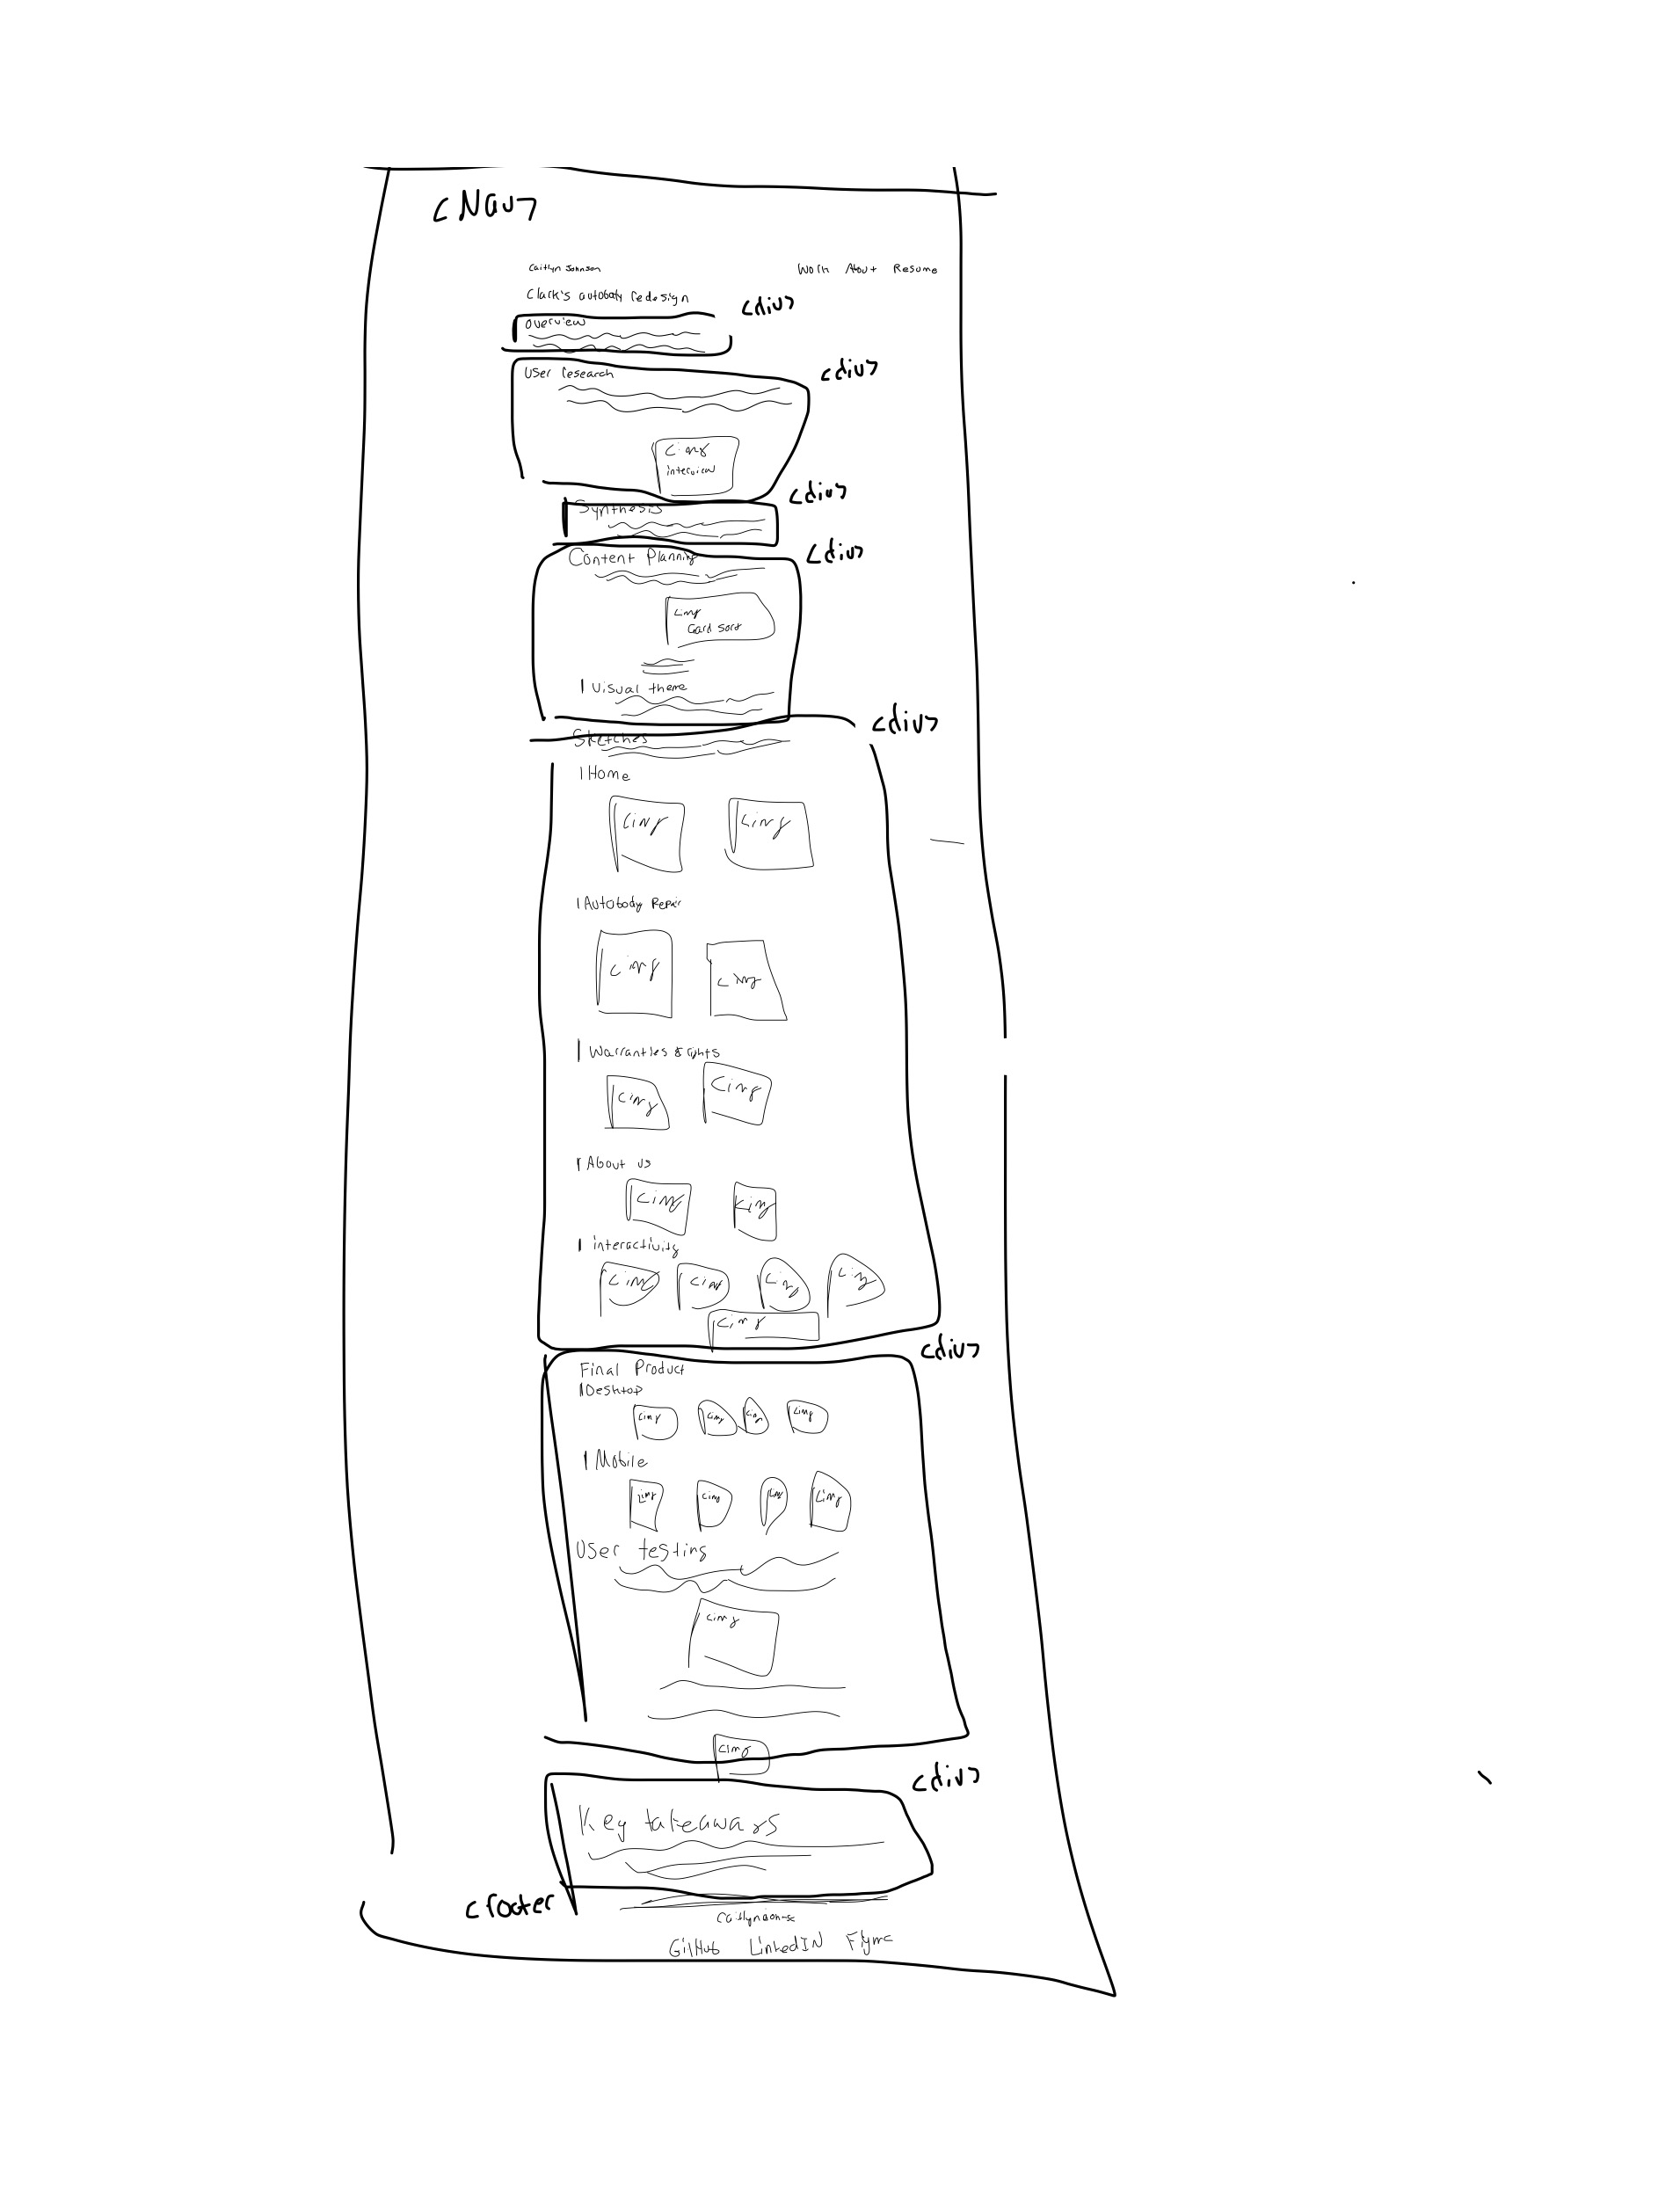 <Nav>
Caitlyn Johnson Work About Resume
Clark's autobody redesign <div>
overview
User research <div>
<img
interview
<div>
Synthesis
<div>
Content Planning
<img
Card sort
Visual theme
<div>
Sketches
Home
<img <img
Autobody Repair
<img <img
Warranties & rights
<img <img
About us
<img <img
interactivity
<img <img <img <img
<img
<div>
Final Product
Desktop
<img <img <img <img
Mobile
<img <img <img <img
User testing
<img
<img
<div>
Key takeaways
<footer
GitHub LinkedIN